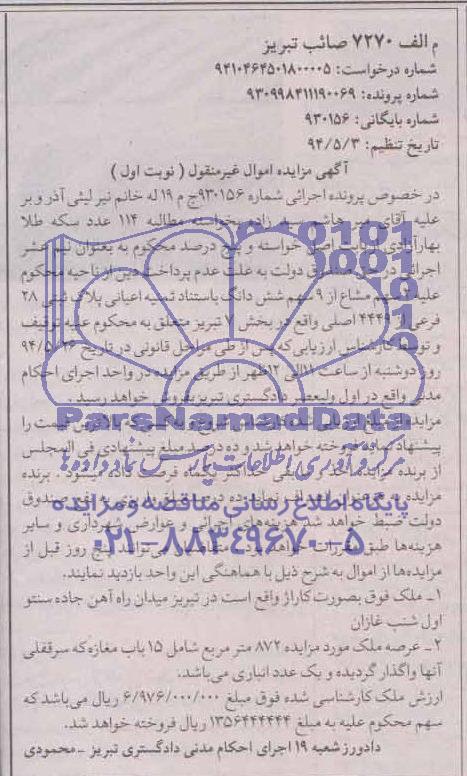 م الف ۷۲۷۰ صائب تبریز
شماره درخواست: ۹۴۱۰۴۶۴۵۰۱۸۰۰۰۰۵
شماره پرونده: ۹۳۰۹۹۸۴۱۱۱۹۰۰۶۹
شماره بایگانی: ۹۳۰۱۵۶
تاریخ تنظیم: ۹۴/۵/۳
آگهی مزایده اموال غیرمنقول ( نوبت اول )
در خصوص پرونده اجرائی شماره ۹۳۰۱۵۶ج م ۱۹ له خانم نیر لیثی آذر و بر
علیه آقای میر هاشم سید زاده بخواسته مطالبه ۱۱۴ عدد سکه طلا
بهار آزادی بابت اصل خواسته و پنج درصد محکوم به بعنوان نیم عشر
اجرائی در حق صندوق دولت به علت عدم پرداخت دین از ناحیه محکوم
علیه سهم مشاع از ۹ سهم شش دانگ باستناد ثمنیه اعیانی پلاک ثبتی ۲۸
فرعی از ۴۴۴۹ اصلی واقع در بخش ۷ تبریز متعلق به محکوم علیه توقیف
و توسط کارشناس ارزیابی که پس از طی مراحل قانونی در تاریخ ۹۴/۵/۲۶
روز دوشنبه از ساعت ۱۱الی ۱۲ظهر از طریق مزایده در واحد اجرای احکام
مدنی واقع در اول ولیعصر دادگستری تبریز بفروش خواهد رسید .
ParsNamadData
مزایده از مبلغ ارزیابی شده کارشناسی شروع و به کسی که بالاترین قیمت را
پیشنهاد نماید فروخته خواهد شد و ده درصد مبلغ پیشنهادی فی المجلس
مرکز فرآوری اطلاعات پارس نماد داده ها
از برنده مزایده اخذ و مابقی حداکثر یکماه فرصت داده میشود . برنده
پایگاه اطلاع رسانی مناقصه و مزایده
دولت ضبط خواهد شد هزینه‌های اجرائی و عوارض شهرداری و سایر
هزینه‌ها طبق مقررات خواهد بود متقاضیان می‌توانند پنج روز قبل از
۰۲۱-۸۸۳۴۹۶۷۰-۵
مزایده‌ها از اموال به شرح ذیل با هماهنگی این واحد بازدید نمایند.
۱ـ ملک فوق بصورت کاراژ واقع است در تبریز میدان راه آهن جاده سنتو
اول شنب غازان
۲ـ عرصه ملک مورد مزایده ۸۷۲ متر مربع شامل ۱۵ باب مغازه‌که سرقفلی
آنها واگذار گردیده و یک عدد انباری می‌باشد.
ارزش ملک کارشناسی شده فوق مبلغ ۶/۹۷۶/۰۰۰/۰۰۰ ریال می‌باشد که
سهم محکوم علیه به مبلغ ۱۳۵۶۴۴۴۴۴۴ ریال فروخته خواهد شد.
دادورز شعبه ۱۹ اجرای احکام مدنی دادگستری تبریز ـ محمودی